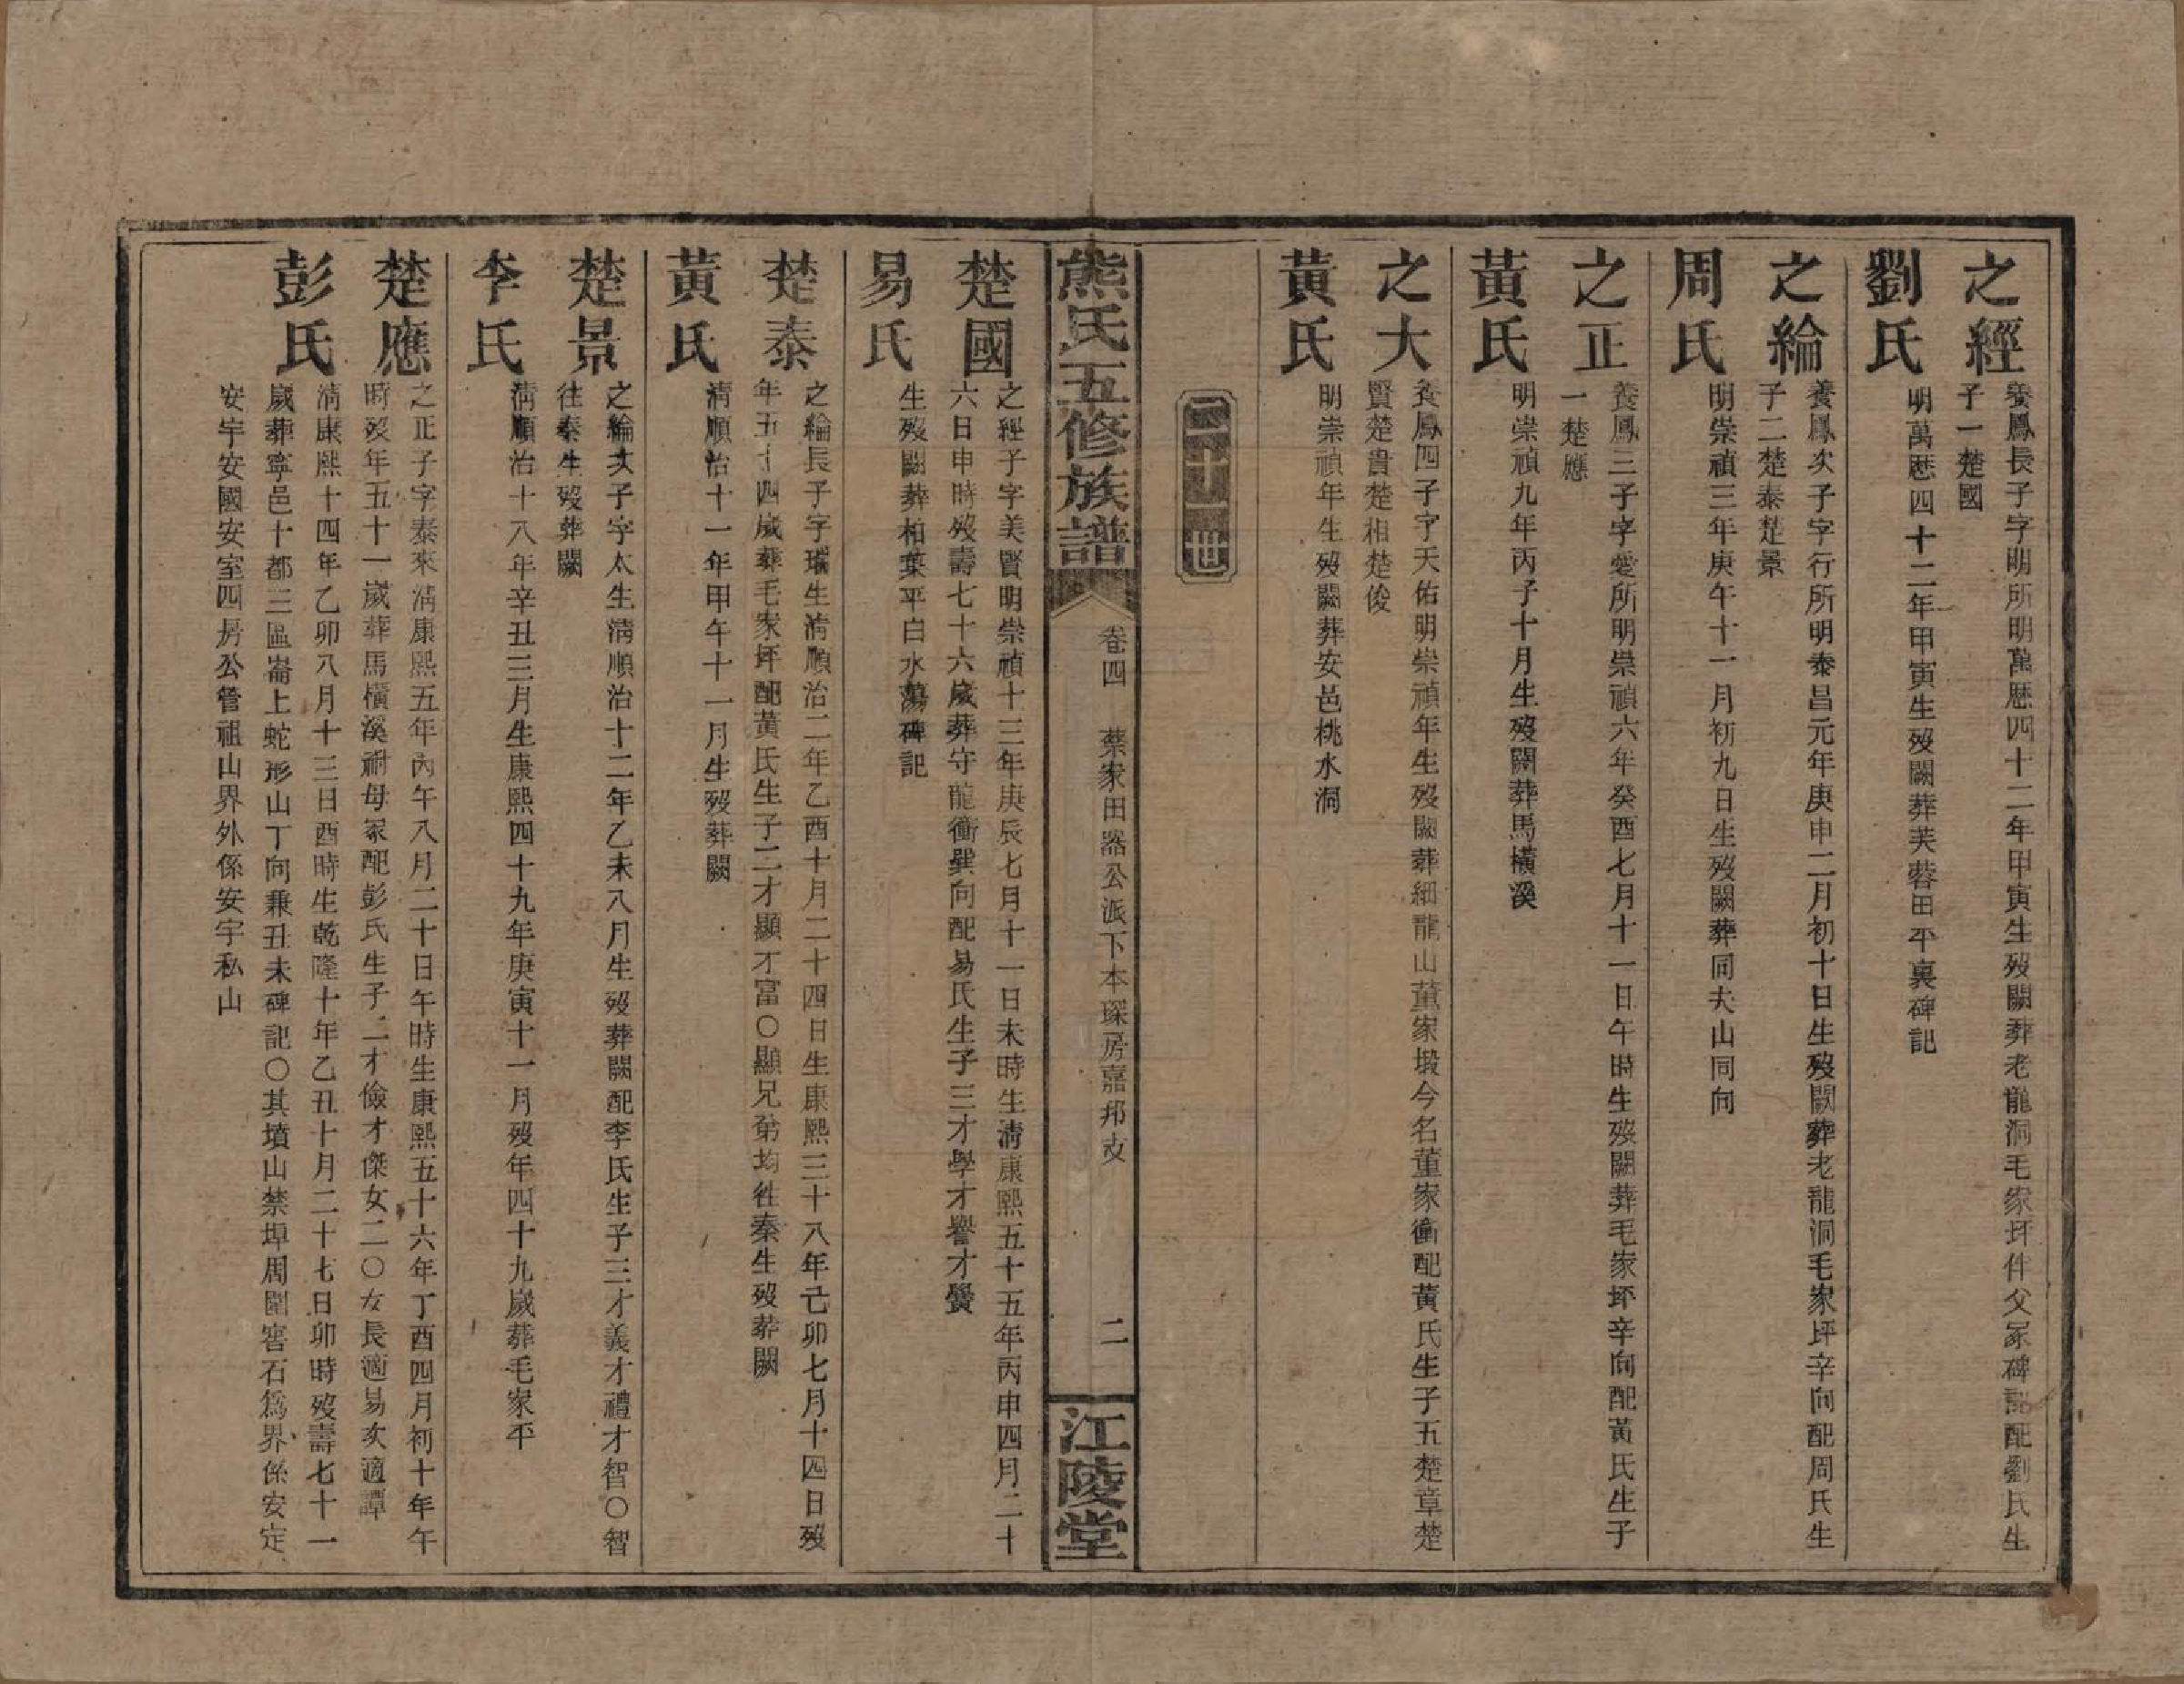 之經
養鳳長子字明所明萬歷四十二年甲寅生歿闕葬老龍洞毛家坪伴父冢碑記配劉氏生
子一楚國
劉氏
明萬歷四十二年甲寅生歿闕葬芙蓉田平裏碑記
之綸
養鳳次子字行所明泰昌元年庚申二月初十日生歿闕葬老龍洞毛家坪辛向配周氏生
子二楚泰楚景
周氏
明崇禎三年庚午十一月初九日生歿闕葬同夫山同向
之正
養鳳三子字愛所明崇禎六年癸酉七月十一日午時生歿闕葬毛家坪辛向配黃氏生子
一楚應
黃氏
明崇禎九年丙子十月生歿闕葬馬橫溪
之大
養鳳四子字天佑明崇禎年生歿闕葬細龍山董家塅今名董家衝配黃氏生子五楚章楚
賢楚貴楚相楚俊
黃氏
明崇禎年生歿闕葬安邑桃水洞
二十一世
熊氏五修族譜
卷四
蔡家田器公派下本琛房嘉邦支
二
江陵堂
楚國
之經子字美賢明崇禎十三年庚辰七月十一日未時生清康熙五十五年丙申四月二十
六日申時歿壽七十六歲葬守龍衝巽向配易氏生子三才學才譽才黌
易氏
生歿闕葬柏葉平白水蕩碑記
楚泰
之綸長子字瑞生清順治二年乙酉十月二十四日生康熙三十八年己卯七月十四日歿
年五十四歲葬毛家坪配黃氏生子二才顯才富〇顯兄弟均徃秦生歿葬闕
黃氏
清順治十一年甲午十一月生歿葬闕
楚景
之綸次子字太生清順治十二年乙未八月生歿葬闕配李氏生子三才義才禮才智〇智
徃秦生歿葬闕
李氏
清順治十八年辛丑三月生康熙四十九年庚寅十一月歿年四十九歲葬毛家平
楚應
之正子字泰來清康熙五年丙午八月二十日午時生康熙五十六年丁酉四月初十年午
時歿年五十一歲葬馬橫溪祔母冢配彭氏生子二才儉才傑女二〇女長適易次適譚
彭氏
清康熙十四年乙卯八月十三日酉時生乾隆十年乙丑十月二十七日卯時歿壽七十一
歲葬寧邑十都三區崙上蛇形山丁向兼丑未碑記〇其墳山禁埠周圍窖石爲界係安定
安宇安國安室四房公管祖山界外係安宇私山